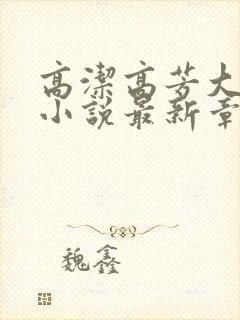 高潔高芳大
小說最新章
魏鑫